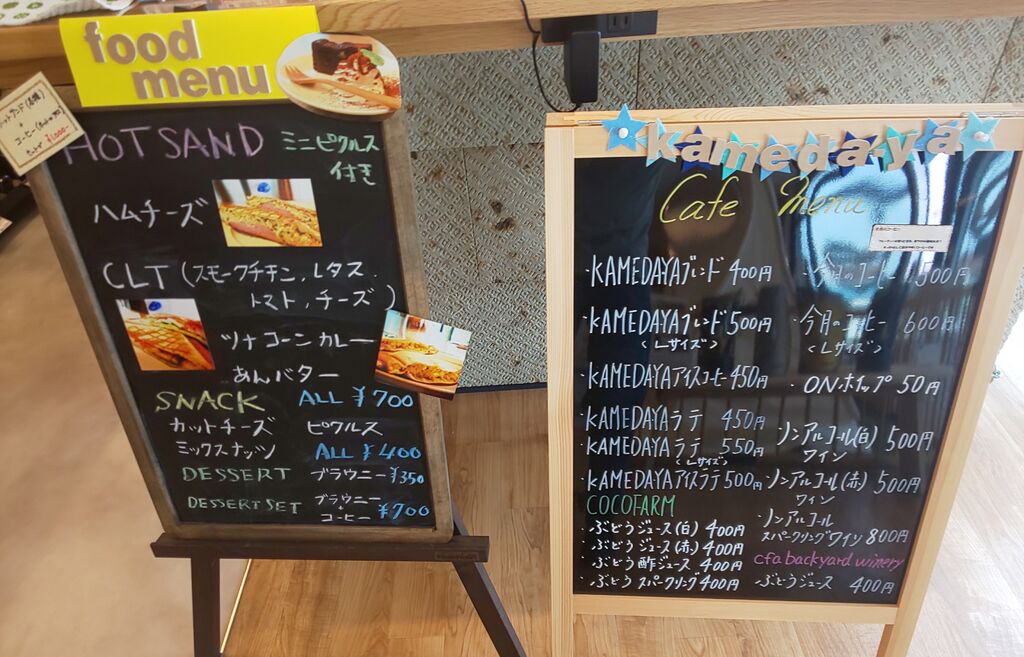 food
menu
ホットサンド(各種)
+
コーヒー
セット ¥1000-
HOT SAND ミニピクルス
付き
ハムチーズ
CLT (スモークチキン, レタス,
トマト, チーズ)
ツナコーンカレー
あんバター
SNACK ALL ¥700
カットチーズ ピクルス
ミックスナッツ ALL ¥400
DESSERT ブラウニー ¥350
DESSERT SET ブラウニー
+
コーヒー ¥700
kameda-ya
Cafe Menu
・KAMEDAYAブレンド 400円
・KAMEDAYAブレンド 500円
(Lサイズ)
・KAMEDAYAアイスコーヒー 450円
・KAMEDAYAラテ 450円
・KAMEDAYAラテ 550円
(Lサイズ)
・KAMEDAYAアイスラテ 500円
COCOFARM
・ぶどうジュース(白) 400円
・ぶどうジュース(赤) 400円
・ぶどう酢ジュース 400円
・ぶどうスパークリング 400円
・今月のコーヒー 500円
・今月のコーヒー 600円
(Lサイズ)
・ONホップ 50円
・ノンアルコール(白)
ワイン 500円
・ノンアルコール(赤)
ワイン 500円
・ノンアルコール
スパークリングワイン 800円
cfa backyard winery
・ぶどうジュース 400円